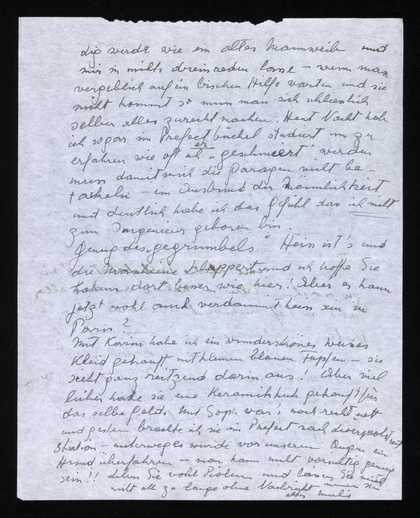 dig werde wie ein altes Mannweib und
mir in nichts dreinreden lasse – wenn man
vergeblich auf ein bischen Hilfe warten und sie
nicht kommt so muss man sich schliesslich
selber alles zurecht machen. Heut Nacht hab
ich sogar im Prefect büchel studiert um zu
erfahren wie oft er „geschmiert“ werden
muss damit mich die Garagen nicht be-
– ein Ausbruch der Männlichkeit
und deutlich habe ich das Gefühl das ich nicht
zum Ingenieur geboren bin
Genug des gegrimbels“ Heiss ist's und
die klappert und ich hoffe Sie
habens dort besser wie hier! Aber es kann
jetzt wohl auch verdammt heiss sein in
Paris?
Mit Karin habe ich ein wunderschönes weisses
Kleid gekauft mit blauen Tupfen – sie
sieht ganz reitzend darin aus! Aber viel
lieber hätte sie eine Keramik gekauft für
das selbe Geld. Mit war's noch recht nett
und gestern brachte ich sie im Prefect nach Liverpool st
Station – unterwegs wurde vor unseren Augen ein
Hund überfahren – man kann nicht vorsichtig genug
sein!! Leben Sie wohl und lassen Sie mich
nicht all zu lange ohne Nachricht
alles